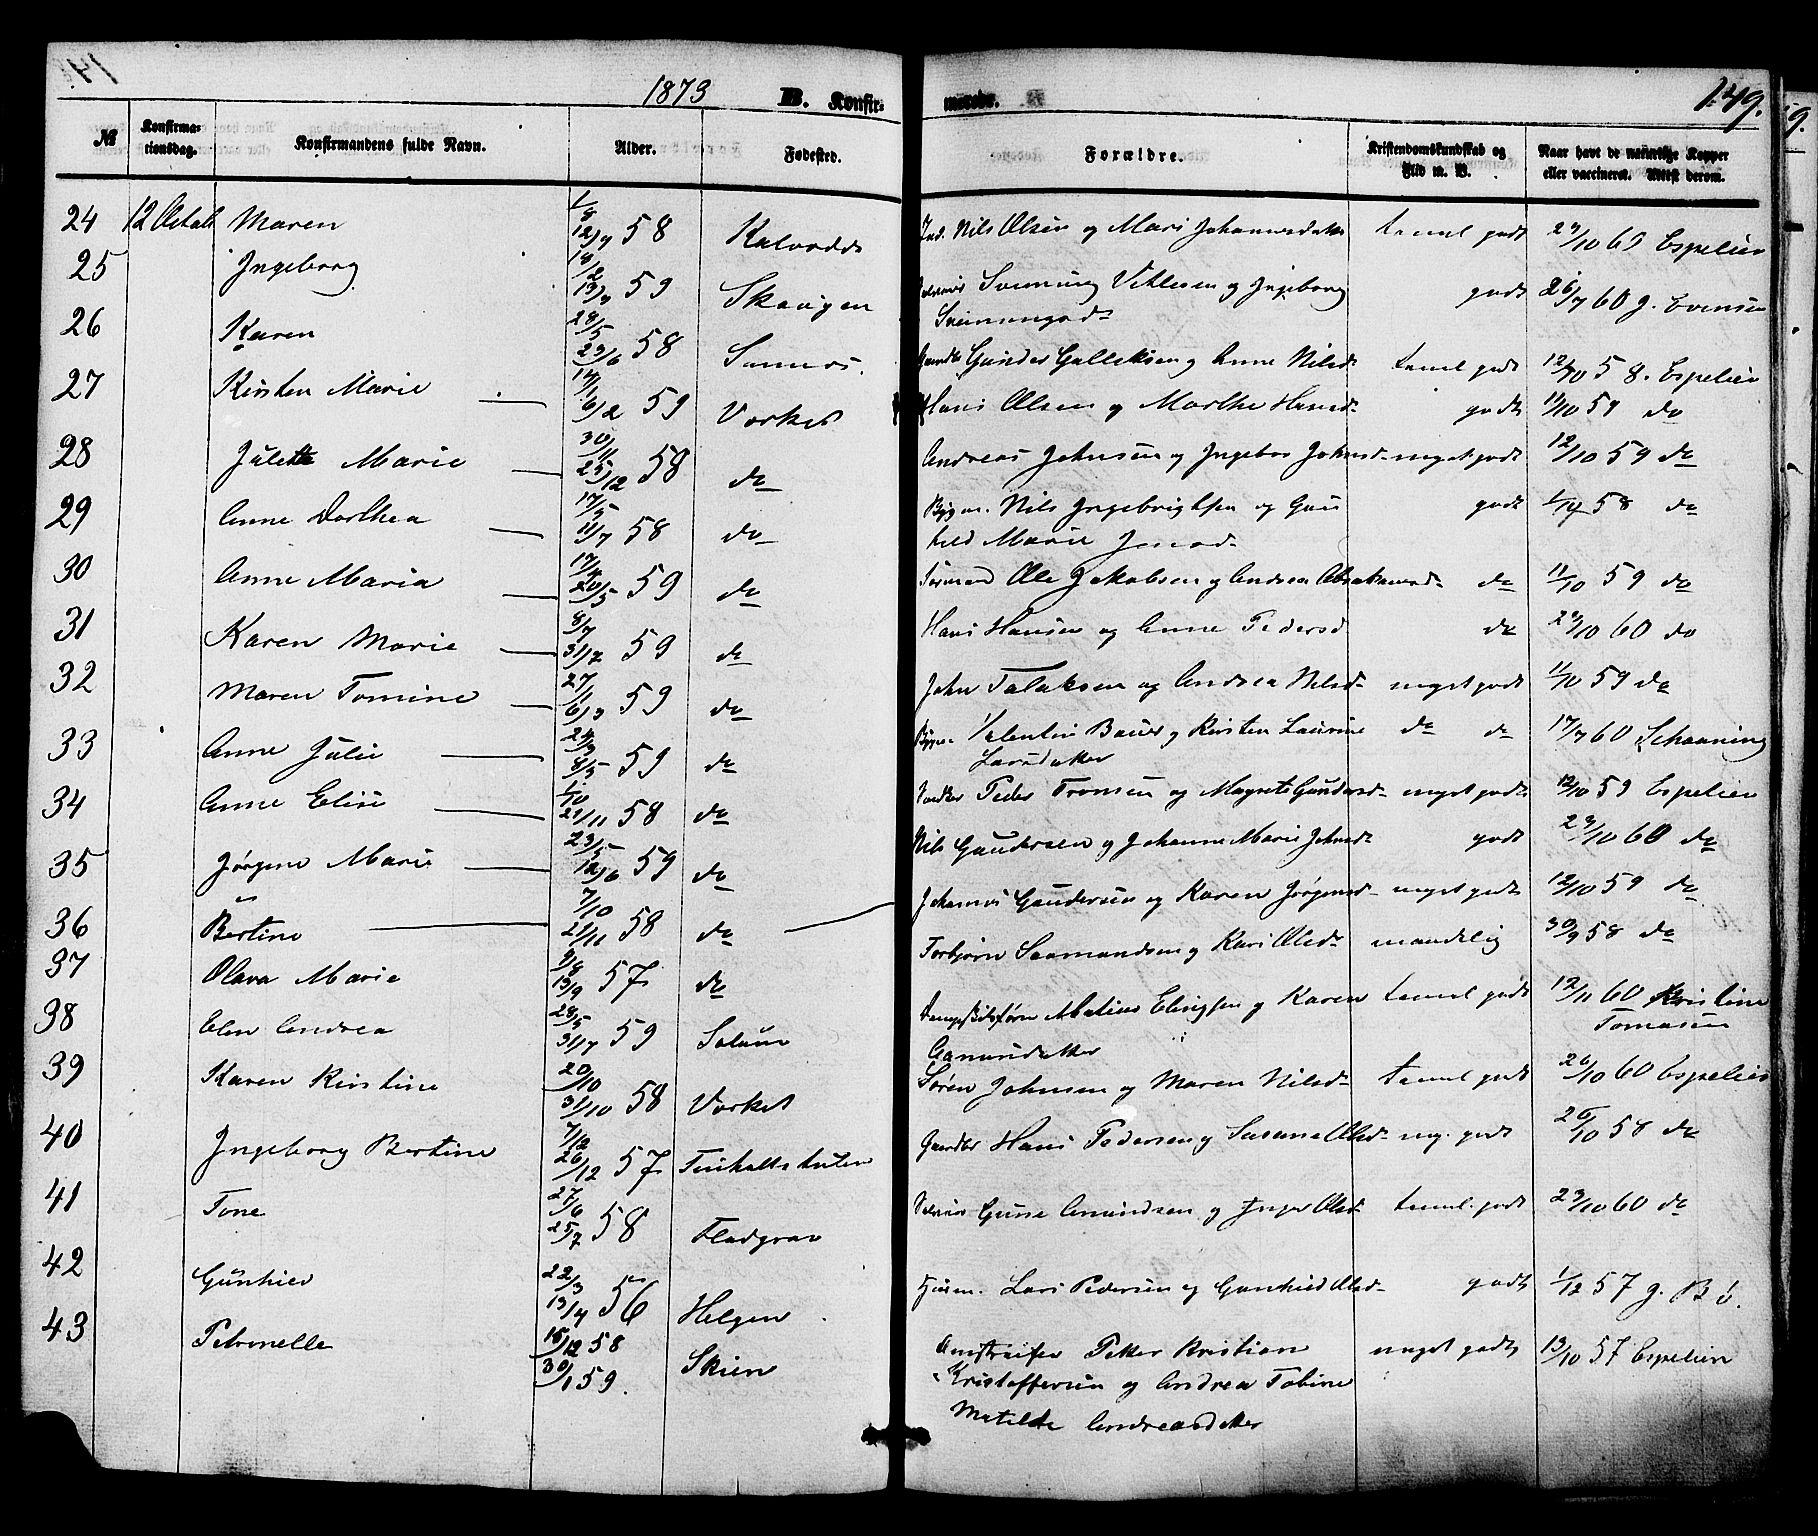 1873 B. Konfir- merede. 149.
№ Konfirma-tionsdag. Konfirmandens fulde Navn. Alder. Fødested. Forældre. Kristendomskundskab og Flid m. V. Naar havt de naturlige Kopper eller vaccineret. Attest derom.
24 12 Octob Maren 1/8 12/9 58 Nils Olsen og Mari Johannesdatter temel. godt 29/10 60 Espelien
25 Ingeborg 59 Skougen Svenning Vetlesen og Ingeborg godt 26/7 60 g. Evensen
Svennungsd-
26 Karen 28/5 29/6 58 Gunder Gulleksen og Anne Nilsd- temel godt 12/10 58. Espelien
27 Kirsten Marie 14/1 6/2 59 Vorket Hans Olsen og Marthe Hansd- godt 11/10 59 do
28 Julette Marie 30/11 25/12 58 do Andreas Johnsen og Ingebor Johnsd- meget godt 12/10 59 do
29 Anne Dorthea 17/5 11/7 58 do Bygm. Nils Ingebrigtsen og Gun godt 58 do
hild Marie Jensd-
30 Anne Maria 17/4 20/5 59 do Sømand Ole Jakobsen og Andrea Abrahamsd- do 11/10 59 do
31 Karen Marie 8/7 31/7 59 do Hans Hansen og Anne Pedersd do 29/10 60 do
32 Maren Tomine 27/1 6/3 59 do John Talaksen og Andrea Nilsd- meget godt 11/10 59 do
33 Anne Julie 24/3 8/5 59 do Valentin Bauer og Kirsten Laurine do do 17/7 60 Schaaning
Larsdatter
34 Anne Elise 1/10 21/11 58 do Peder Tronsen og Magrete Gundersd- meget godt 12/10 59 Espelien
35 Jørgine Marie 23/5 12/6 59 do Nils Gundersen og Johanne Marie Johnsd- godt 29/10 60 do
36 Bertine 7/10 21/11 58 do Johannes Gundersen og Karen Jørgensd- meget godt 12/10 59 do
37 Olava Marie 9/8 13/9 57 do Torbjørn Saamundsen og Kari Olsd- maadelig 30/9 58 do
38 Elen Andrea 28/5 31/7 59 Solum Matius Elingsen og Karen temel godt 12/11 60 Kristine
Amundsdatter Tomasen
39 Karen Kirstine 20/10 31/10 58 Vorket Søren Johnsen og Maren Nilsd- temel godt 26/10 60 Espelien
40 Ingeborg Bertine 7/12 26/12 57 Hans Pedersen og Susanne Olsd- meg. godt 26/10 58 do
41 Tone 27/6 25/7 58 Fladgrav Gune Amundsen og Inger Olsd- temel. godt 23/10 60 do
42 Gunhild 22/3 13/4 56 Helgen Lars Pedersen og Gunhild Olsd- godt 1/12 57 g. Bø.
43 Petronelle 15/12 58 Petter Kristian meget godt 13/10 57 Espelien
30/1 59. Skien Kristoffersen og Andrea Tobine
Matilde Andreasdatter